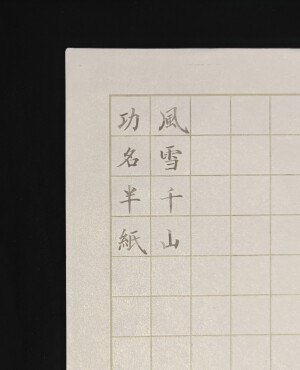 功名半紙
風雪千山